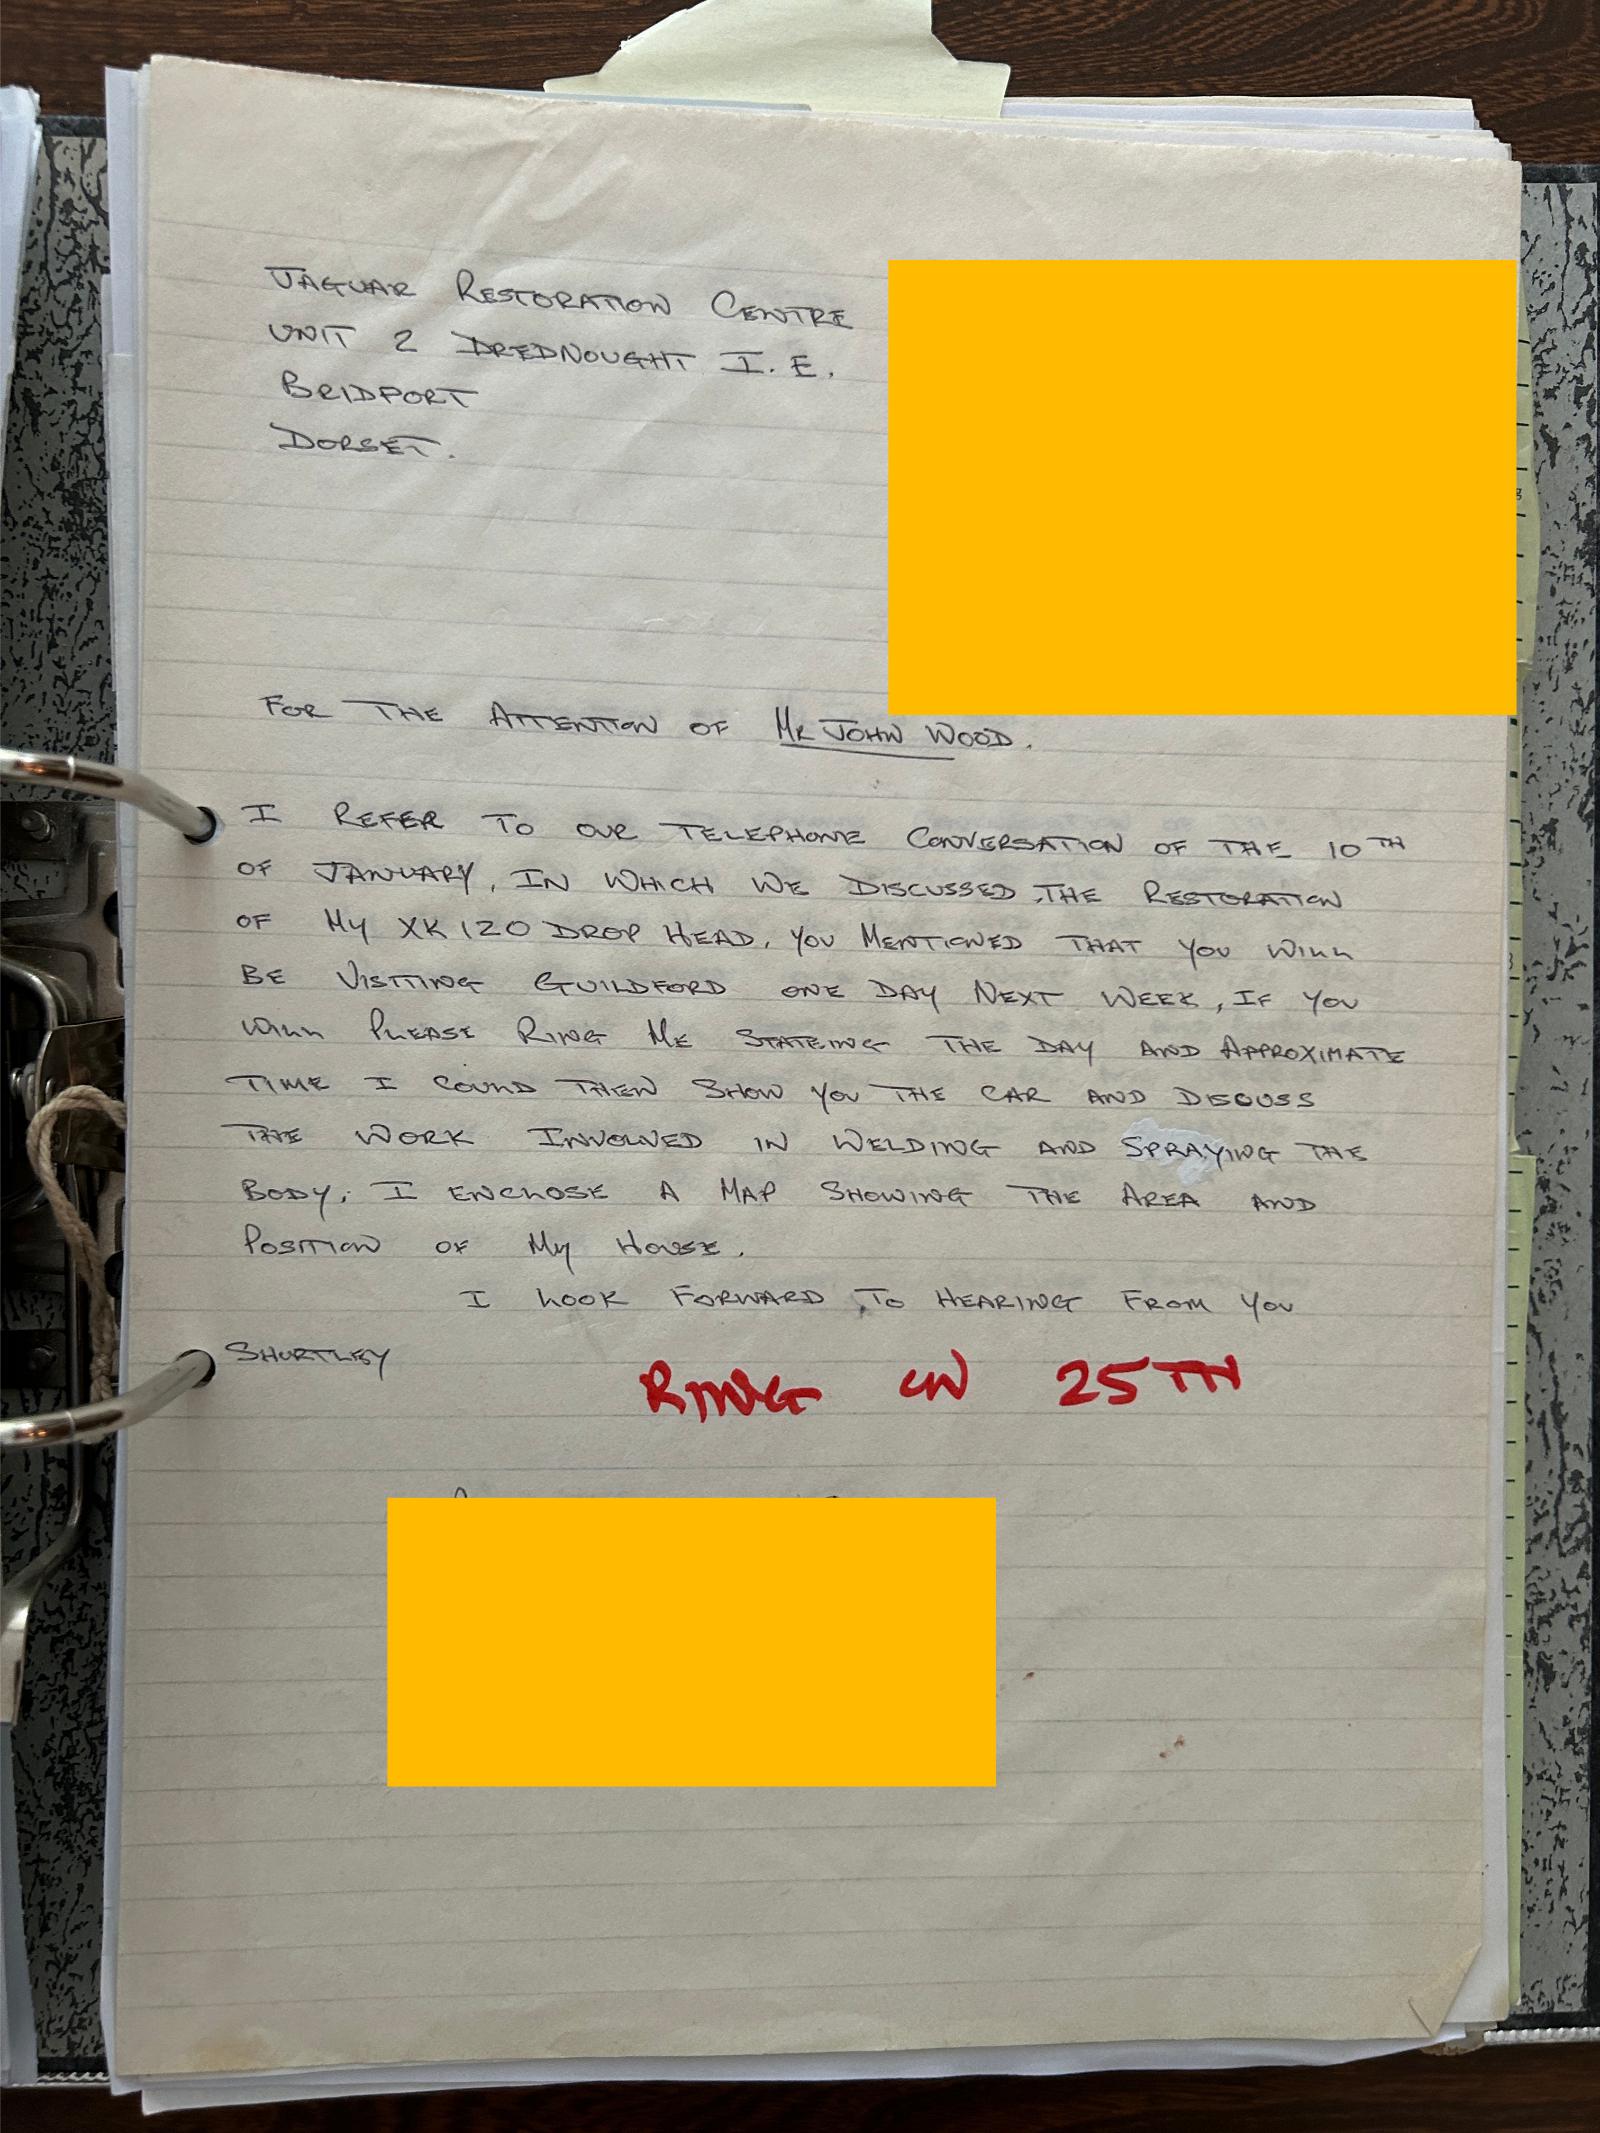 JAGUAR RESTORATION CENTRE
UNIT 2 DREDNOUGHT I.E.
BRIDPORT
DORSET.
FOR THE ATTENTION OF MR JOHN WOOD.
I REFER TO OUR TELEPHONE CONVERSATION OF THE 10TH
OF JANUARY, IN WHICH WE DISCUSSED, THE RESTORATION
OF MY XK 120 DROP HEAD, YOU MENTIONED THAT YOU WILL
BE VISTING GUILDFORD ONE DAY NEXT WEEK, IF YOU
WILL PLEASE RING ME STATEING THE DAY AND APPROXIMATE
TIME I COULD THEN SHOW YOU THE CAR AND DISCUSS
THE WORK INVOLVED IN WELDING AND SPRAYING THE
BODY, I ENCLOSE A MAP SHOWING THE AREA AND
POSITION OF MY HOUSE.
I LOOK FORWARD, TO HEARING FROM YOU
SHORTLEY
RING ON 25TH